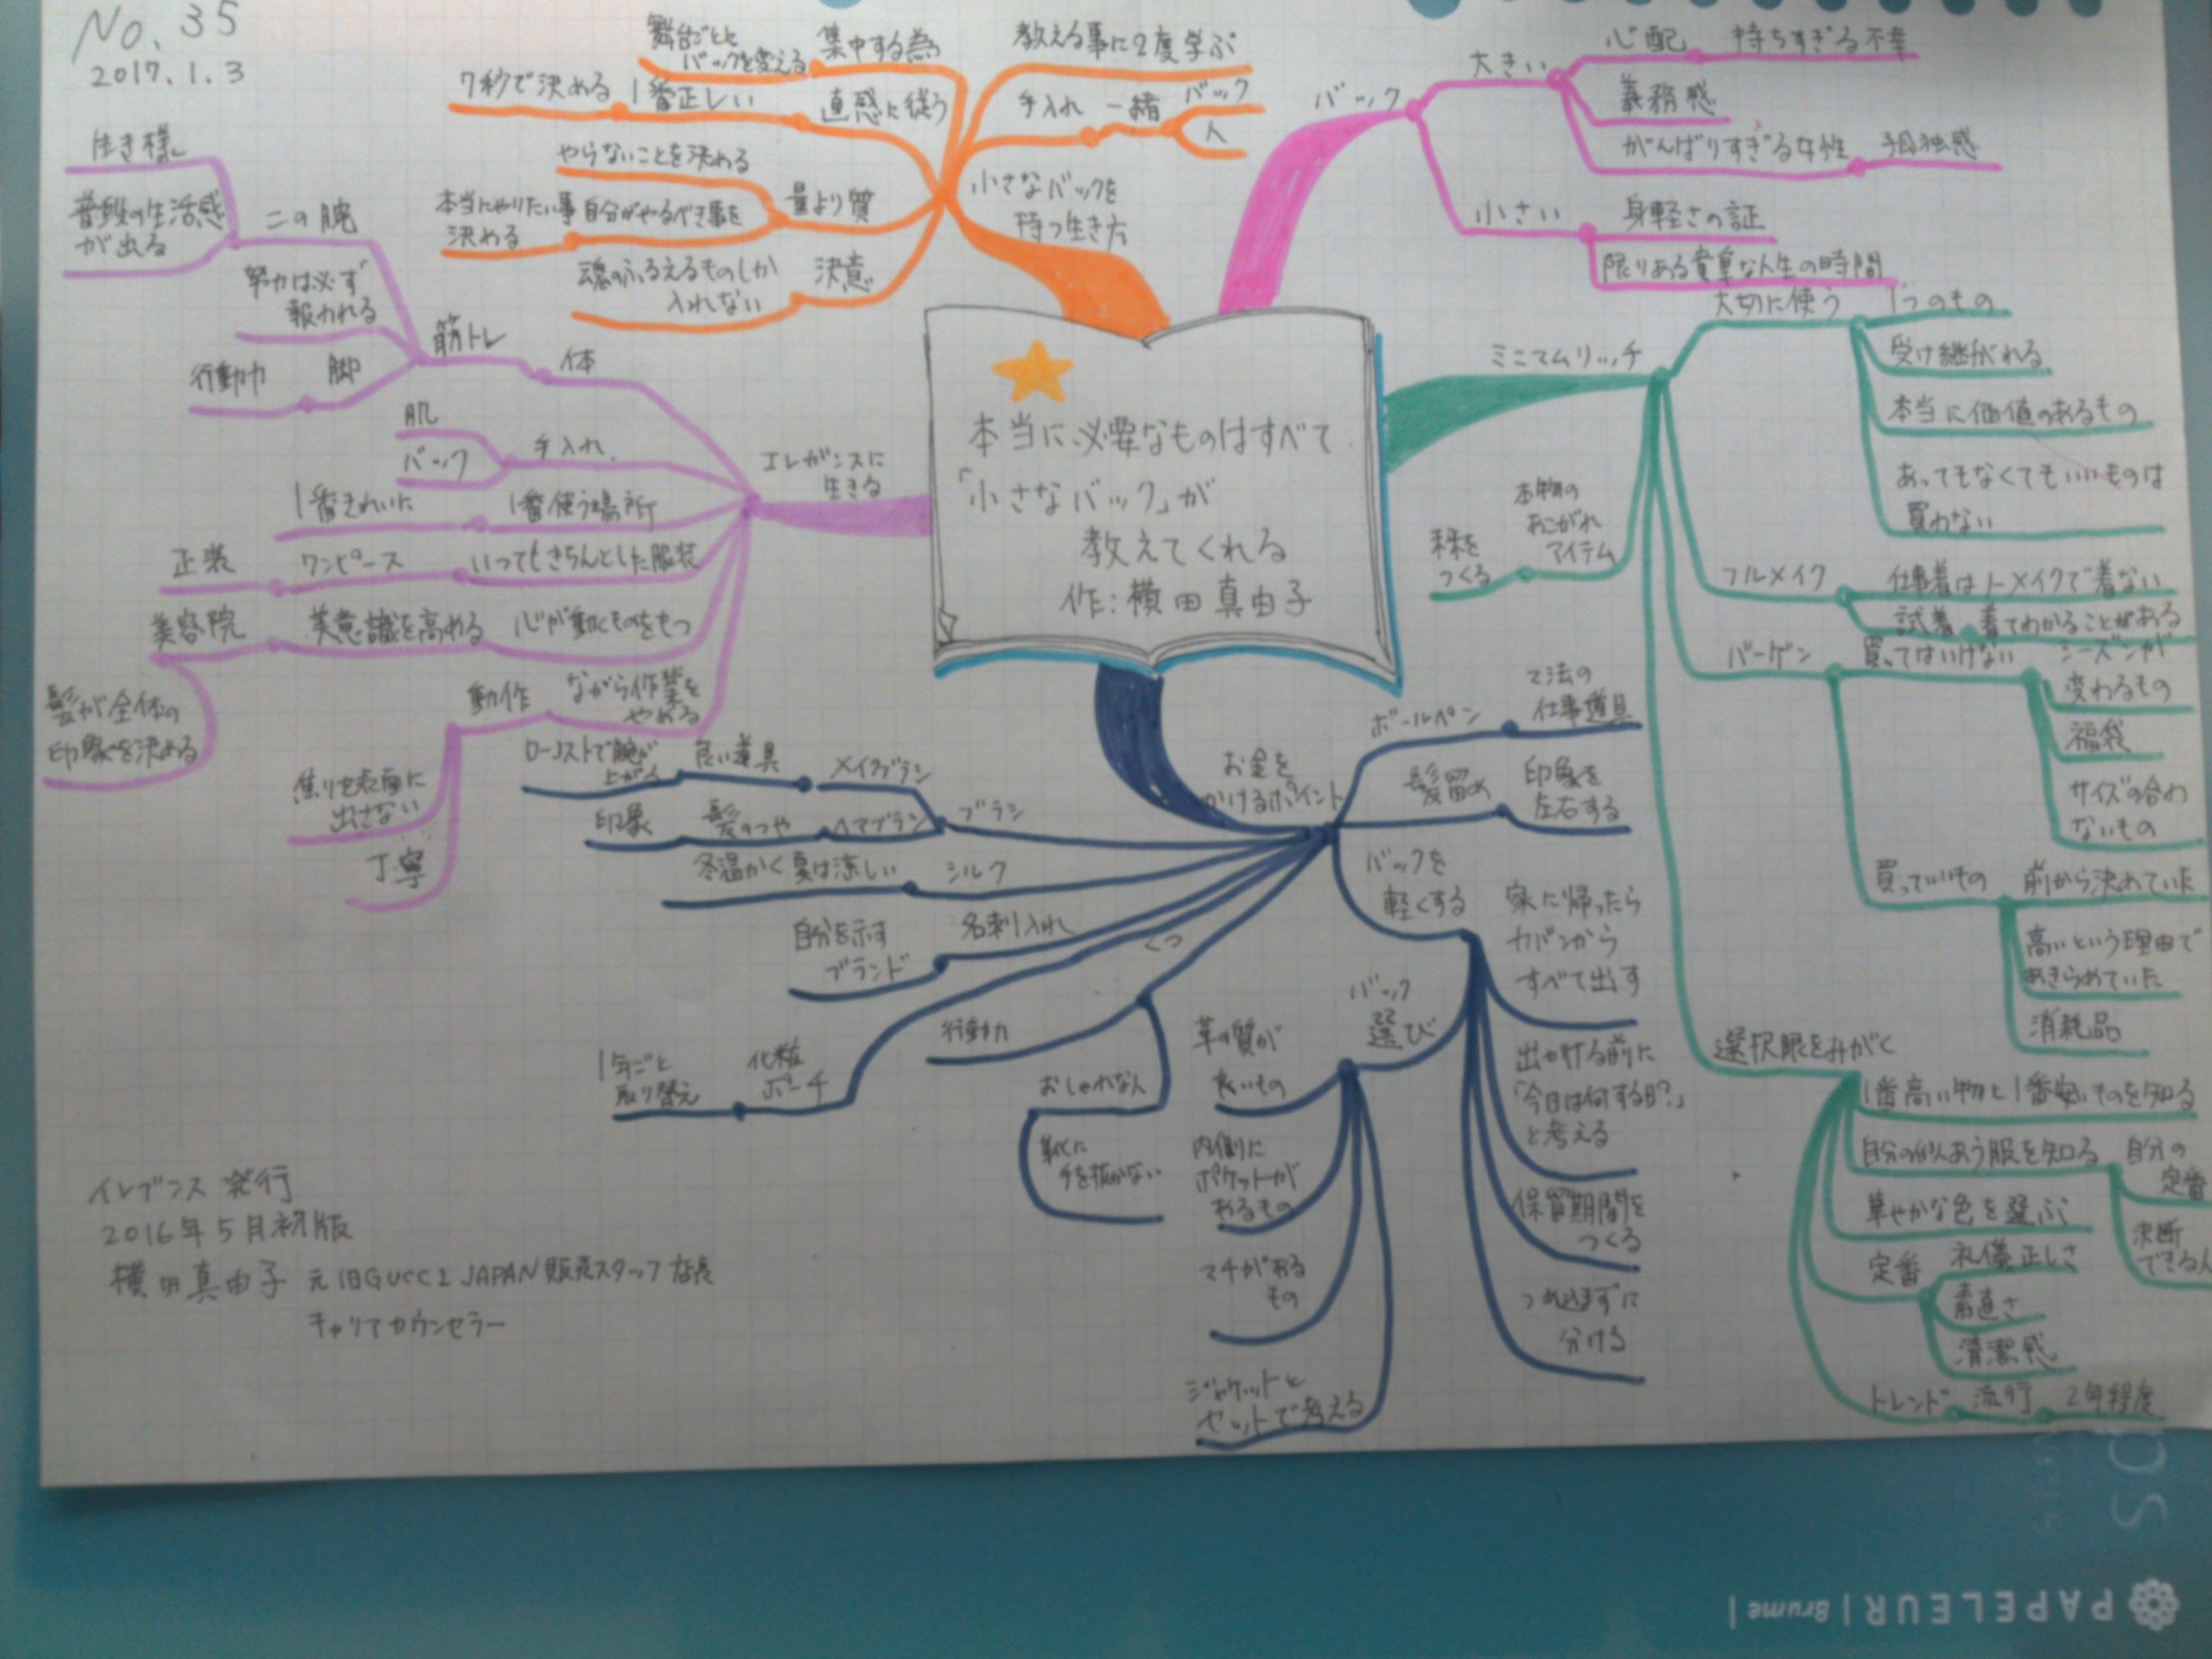 No. 35
2017.1.3
本当に必要なものはすべて
「小さなバック」が
教えてくれる
作:横田真由子
バック
大きい
心配
持ちすぎる不幸
義務感
がんばりすぎる女性
孤独感
小さい
身軽さの証
限りある貴重な人生の時間
ミニマムリッチ
大切に使う
1つのもの
受け継がれる
本当に価値のあるもの
あってもなくてもいいものは
買わない
フルメイク
仕事着はノーメイクで着ない
試着
着てわかることがある
バーゲン
買ってはいけない
シーズンが
変わるもの
福袋
サイズの合わ
ないもの
買っていいもの
前から決めていた
高いという理由で
あきらめていた
消耗品
選択眼をみがく
1番高い物と1番安いものを知る
自分の似あう服を知る
自分の
定番
決断
できる人
華やかな色を選ぶ
定番
礼儀正しさ
素直さ
清潔感
トレンド
流行
2年程度
本物の
あこがれ
アイテム
未来を
つくる
お金を
かけるポイント
ボールペン
仕事道具
髪留め
印象を
左右する
バックを
軽くする
家に帰ったら
カバンから
すべて出す
出かける前に
「今日は何する日?」
と考える
保留期間を
つくる
つめ込まずに
分ける
バック
選び
革の質が
良いもの
内側に
ポケットが
あるもの
マチがある
もの
ジャケットと
セットで考える
くつ
行動力
おしゃれな人
靴に
手を抜かない
化粧
ポーチ
1年ごと
取り替え
名刺入れ
自分を示す
ブランド
シルク
冬温かく夏は涼しい
ブラシ
メイクブラシ
良い道具
ヘアブラシ
髪のつや
印象
エレガンスに
生きる
体
筋トレ
二の腕
生き様
普段の生活感
が出る
努力は必ず
報われる
脚
行動力
手入れ
肌
バック
1番使う場所
1番きれいに
いつもきちんとした服装
ワンピース
正装
心が動くものをもつ
美意識を高める
美容院
髪が全体の
印象を決める
ながら作業を
やめる
動作
焦りを表面に
出さない
丁寧
小さなバックを
持つ生き方
教える事は2度学ぶ
手入れ
一緒
バック
人
集中する為
舞台ごとに
バックを変える
直感に従う
1番正しい
7秒で決める
量より質
やらないことを決める
自分がやるべき事を
本当にやりたい事
決める
決意
魂のふるえるものしか
入れない
イレブンス 発行
2016年5月初版
横田真由子 元旧GUCCI JAPAN販売スタッフ 店長
キャリアカウンセラー
PAPELEUR | Brume |